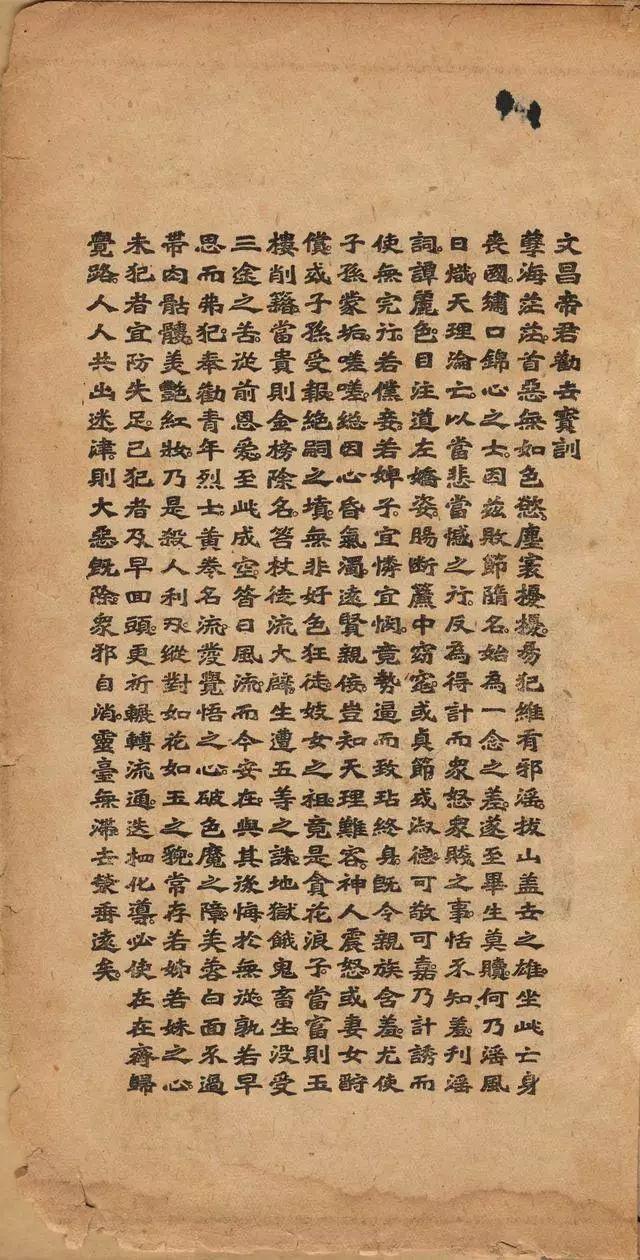 文昌帝君勸世寶訓
孽海茫茫。首惡無如色慾。塵寰擾擾。易犯維有邪淫。拔山蓋世之雄。坐此亡身
喪國。繡口錦心之士。因茲敗節隳名。始為一念之差。遂至畢生莫贖。何乃淫風
日熾。天理淪亡。以當悲當憾之行。反為得計。而衆怒衆賤之事。恬不知羞。刊淫
詞。譚麗色。目注道左嬌姿。腸斷簾中窈窕。或貞節。或淑德。可敬可嘉。乃計誘而
使無完行。若僕妾。若婢子。宜憐宜憫。竟勢逼而致玷終身。既令親族含羞。尤使
子孫蒙垢。嗟嗟。總因心昏氣濁。遠賢親佞。豈知天理難容。神人震怒。或妻女酧
償。或子孫受報。絕嗣之墳。無非好色狂徒。妓女之祖。竟是貪花浪子。當富則玉
樓削籍。當貴則金榜除名。笞杖徒流大辟。生遭五等之誅。地獄餓鬼畜生。没受
三途之苦。從前恩愛。至此成空。昝日風流。而今安在。與其後悔於無從。孰若早
思而弗犯。奉勸青年烈士。黃卷名流。發覺悟之心。破色魔之障。芙蓉白面。不過
帶肉骷髏。美艷紅妝。乃是殺人利刃。縱對如花如玉之貌。常存若姊若妹之心。
未犯者宜防失足。已犯者及早回頭。更祈輾轉流通。迭相化導。必使在在齊歸
覺路。人人共出迷津。則大惡既除。衆邪自消。靈臺無滯。世榮垂遠矣。